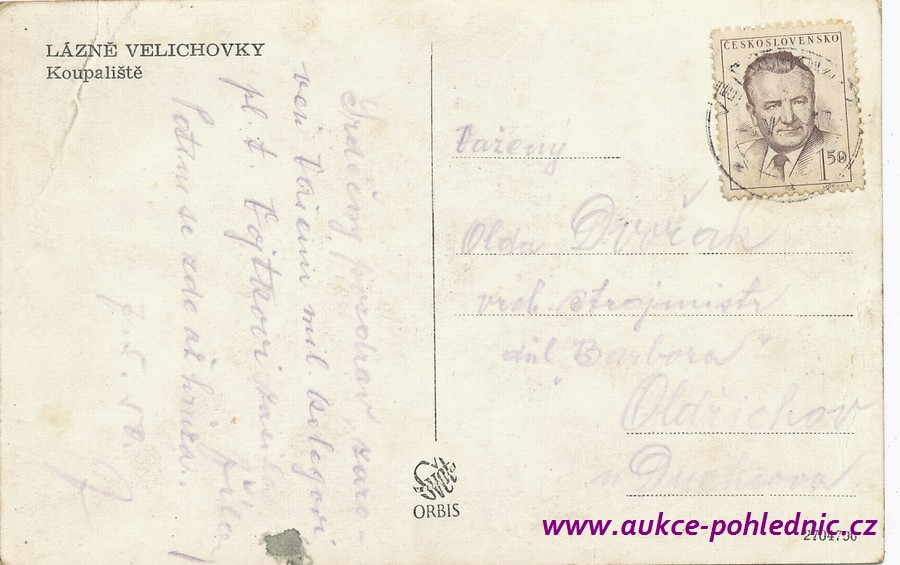 LÁZNĚ VELICHOVKY
Koupaliště
Srdečný pozdrav, zaro-
veň Vašemu mil. kolegovi
pl. t. Vojtkovi zasílá
Potím se zde až hrůza.
7.5.50.
ČESKOSLOVENSKO
1 50
Vážený
Olda Dvořák
vrch. strojmistr
důl "Barbora"
Oldřichov
u Duchcova
ORBIS
www.aukce-pohlednic.cz